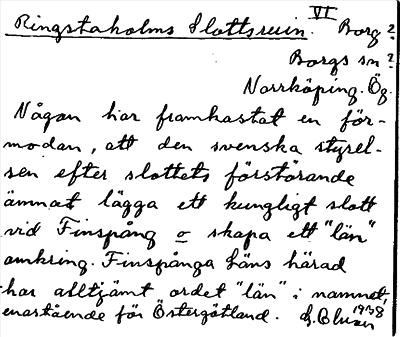 VI
Ringstaholms Slottsruin. Borg?
Borgs sn?
Norrköping. Ög.
Någon har framkastat en för-
modan, att den svenska styrel-
sen efter slottets förstörande
ämnat lägga ett kungligt slott
vid Finspång o skapa ett "län"
omkring. Finspånga läns härad
har alltjämt ordet "län" i namnet,
enastående för Östergötland. 1938